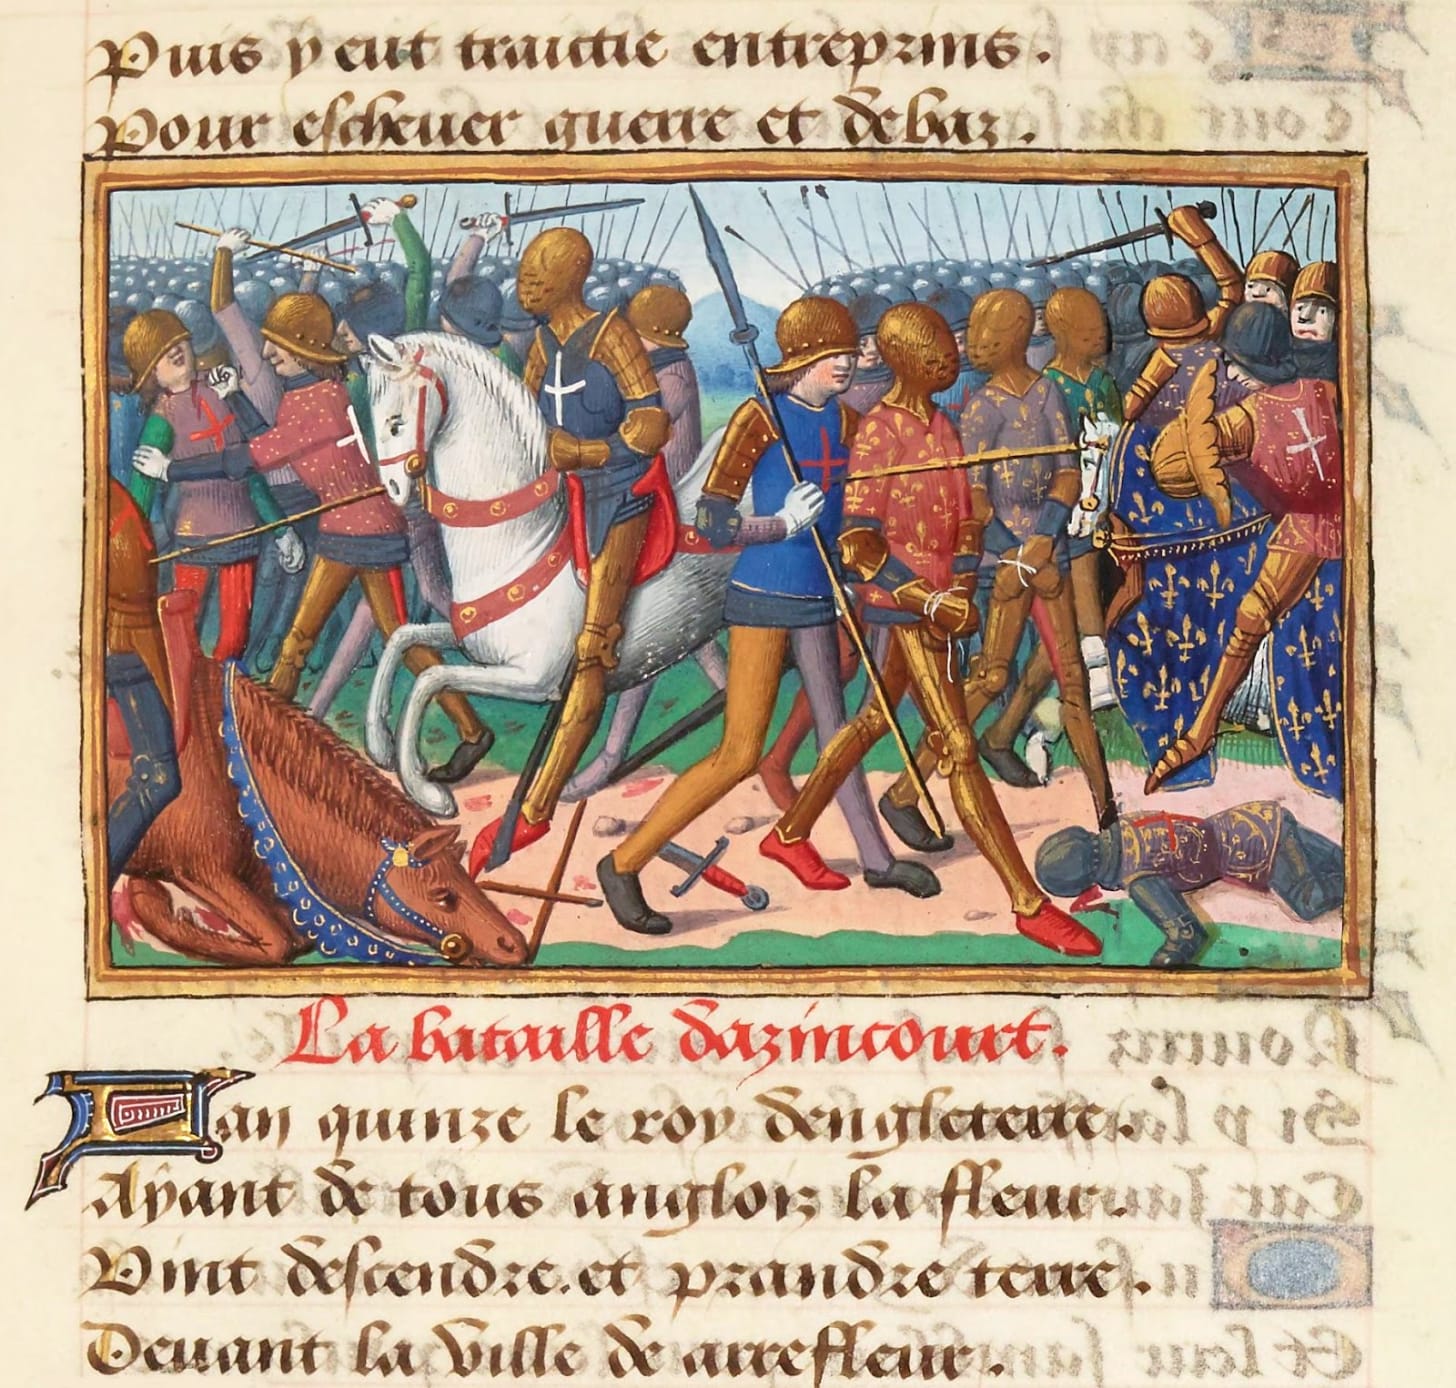 Puis y eut traictie entreprins.
Pour escheuer guerre et debaz.
La bataille dazincourt.
Lan quinze le roy dengleterre.
Ayant de tous anglois la fleur.
Vint descendre. et prandre terre.
Deuant la ville de arrefleur.